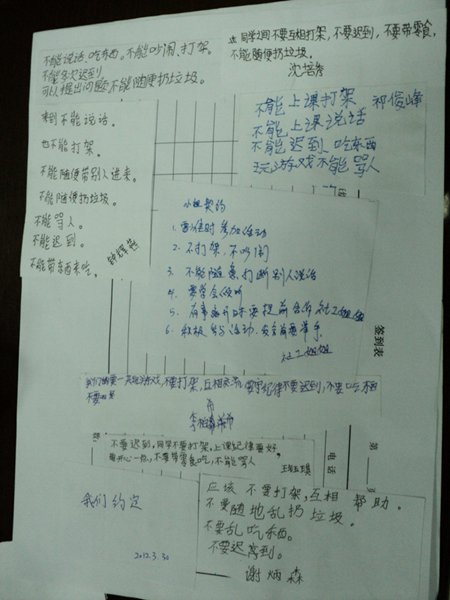 不能说话、吃东西、不能吵闹、打架。
不能多次迟到。
可以提出问题不能随便扔垃圾。
同学之间不要互相打架，不要迟到，不要带零食，
不能随便扔垃圾。
不能上课打架 祁俊峰
不能上课说话
不能迟到、吃东西
玩游戏不能骂人
来到不能说话。
也不能打架。
不能随便带别人进来。
不能随便扔垃圾。
不能骂人。
不能迟到。
不能带东西来吃。
小组契约
1. 要准时参加活动
2. 不打架，不吵闹
3. 不能随意打断别人说话
4. 要学会倾听
5. 有事请假要提前告诉社工姐姐
6. 积极参与活动，发言前要举手
社工姐姐
签到表
不要打架，互相
不要迟到，不要吃东西
不要迟到，同学不要打架。上课纪律要好。
要开心一点，不要带零食吃，不能骂人
第
电话
我们约定
2012.3.30
应该不要打架，互相帮助。
不要随地乱扔垃圾。
不要乱吃东西。
不要迟到。
谢炳森